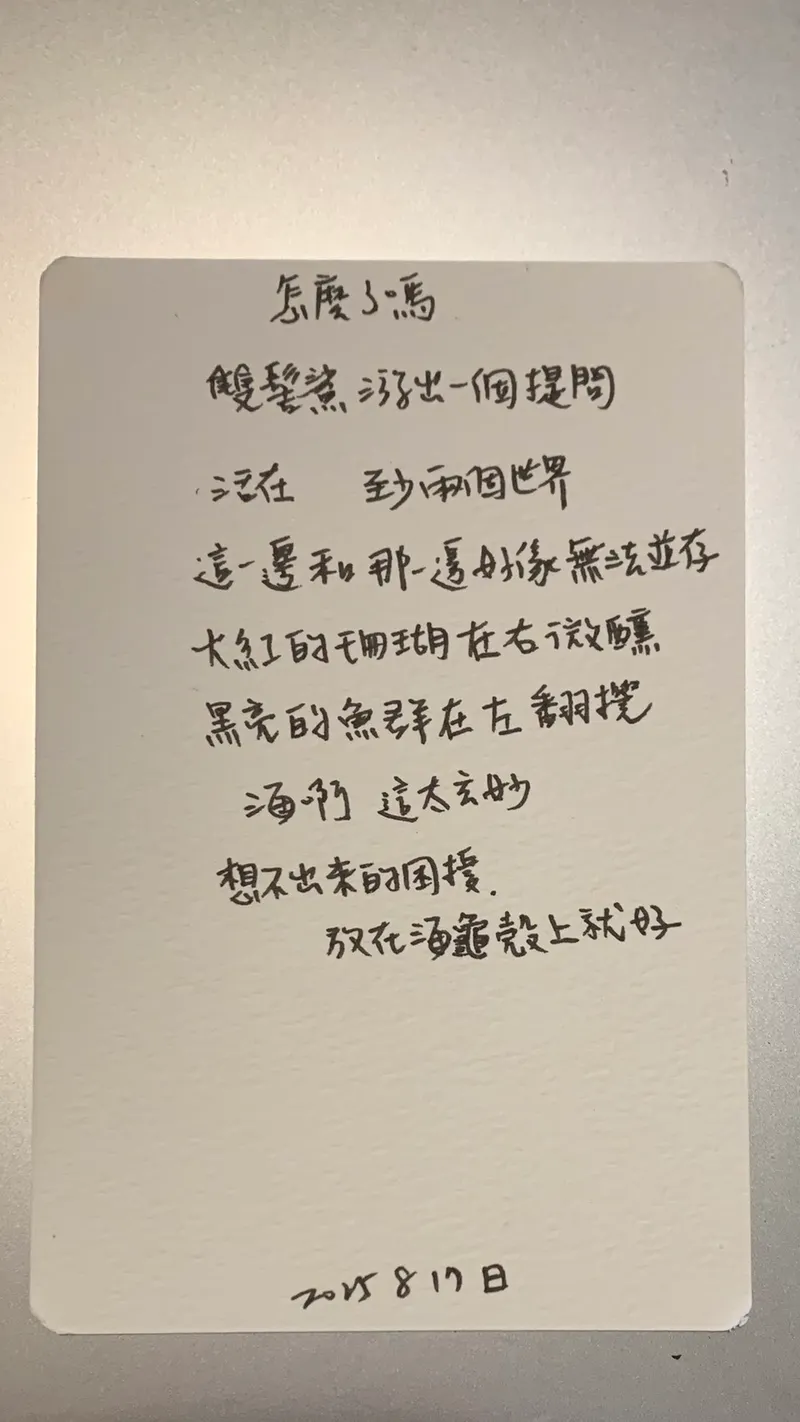 怎麼了嗎
雙髻鯊游出一個提問
活在 至少兩個世界
這一邊和那一邊好像無法並存
大紅的珊瑚在右微醺
黑亮的魚群在左翻攪
海啊 這太玄妙
想不出來的困擾.
放在海龜殼上就好
2025 8 17 日